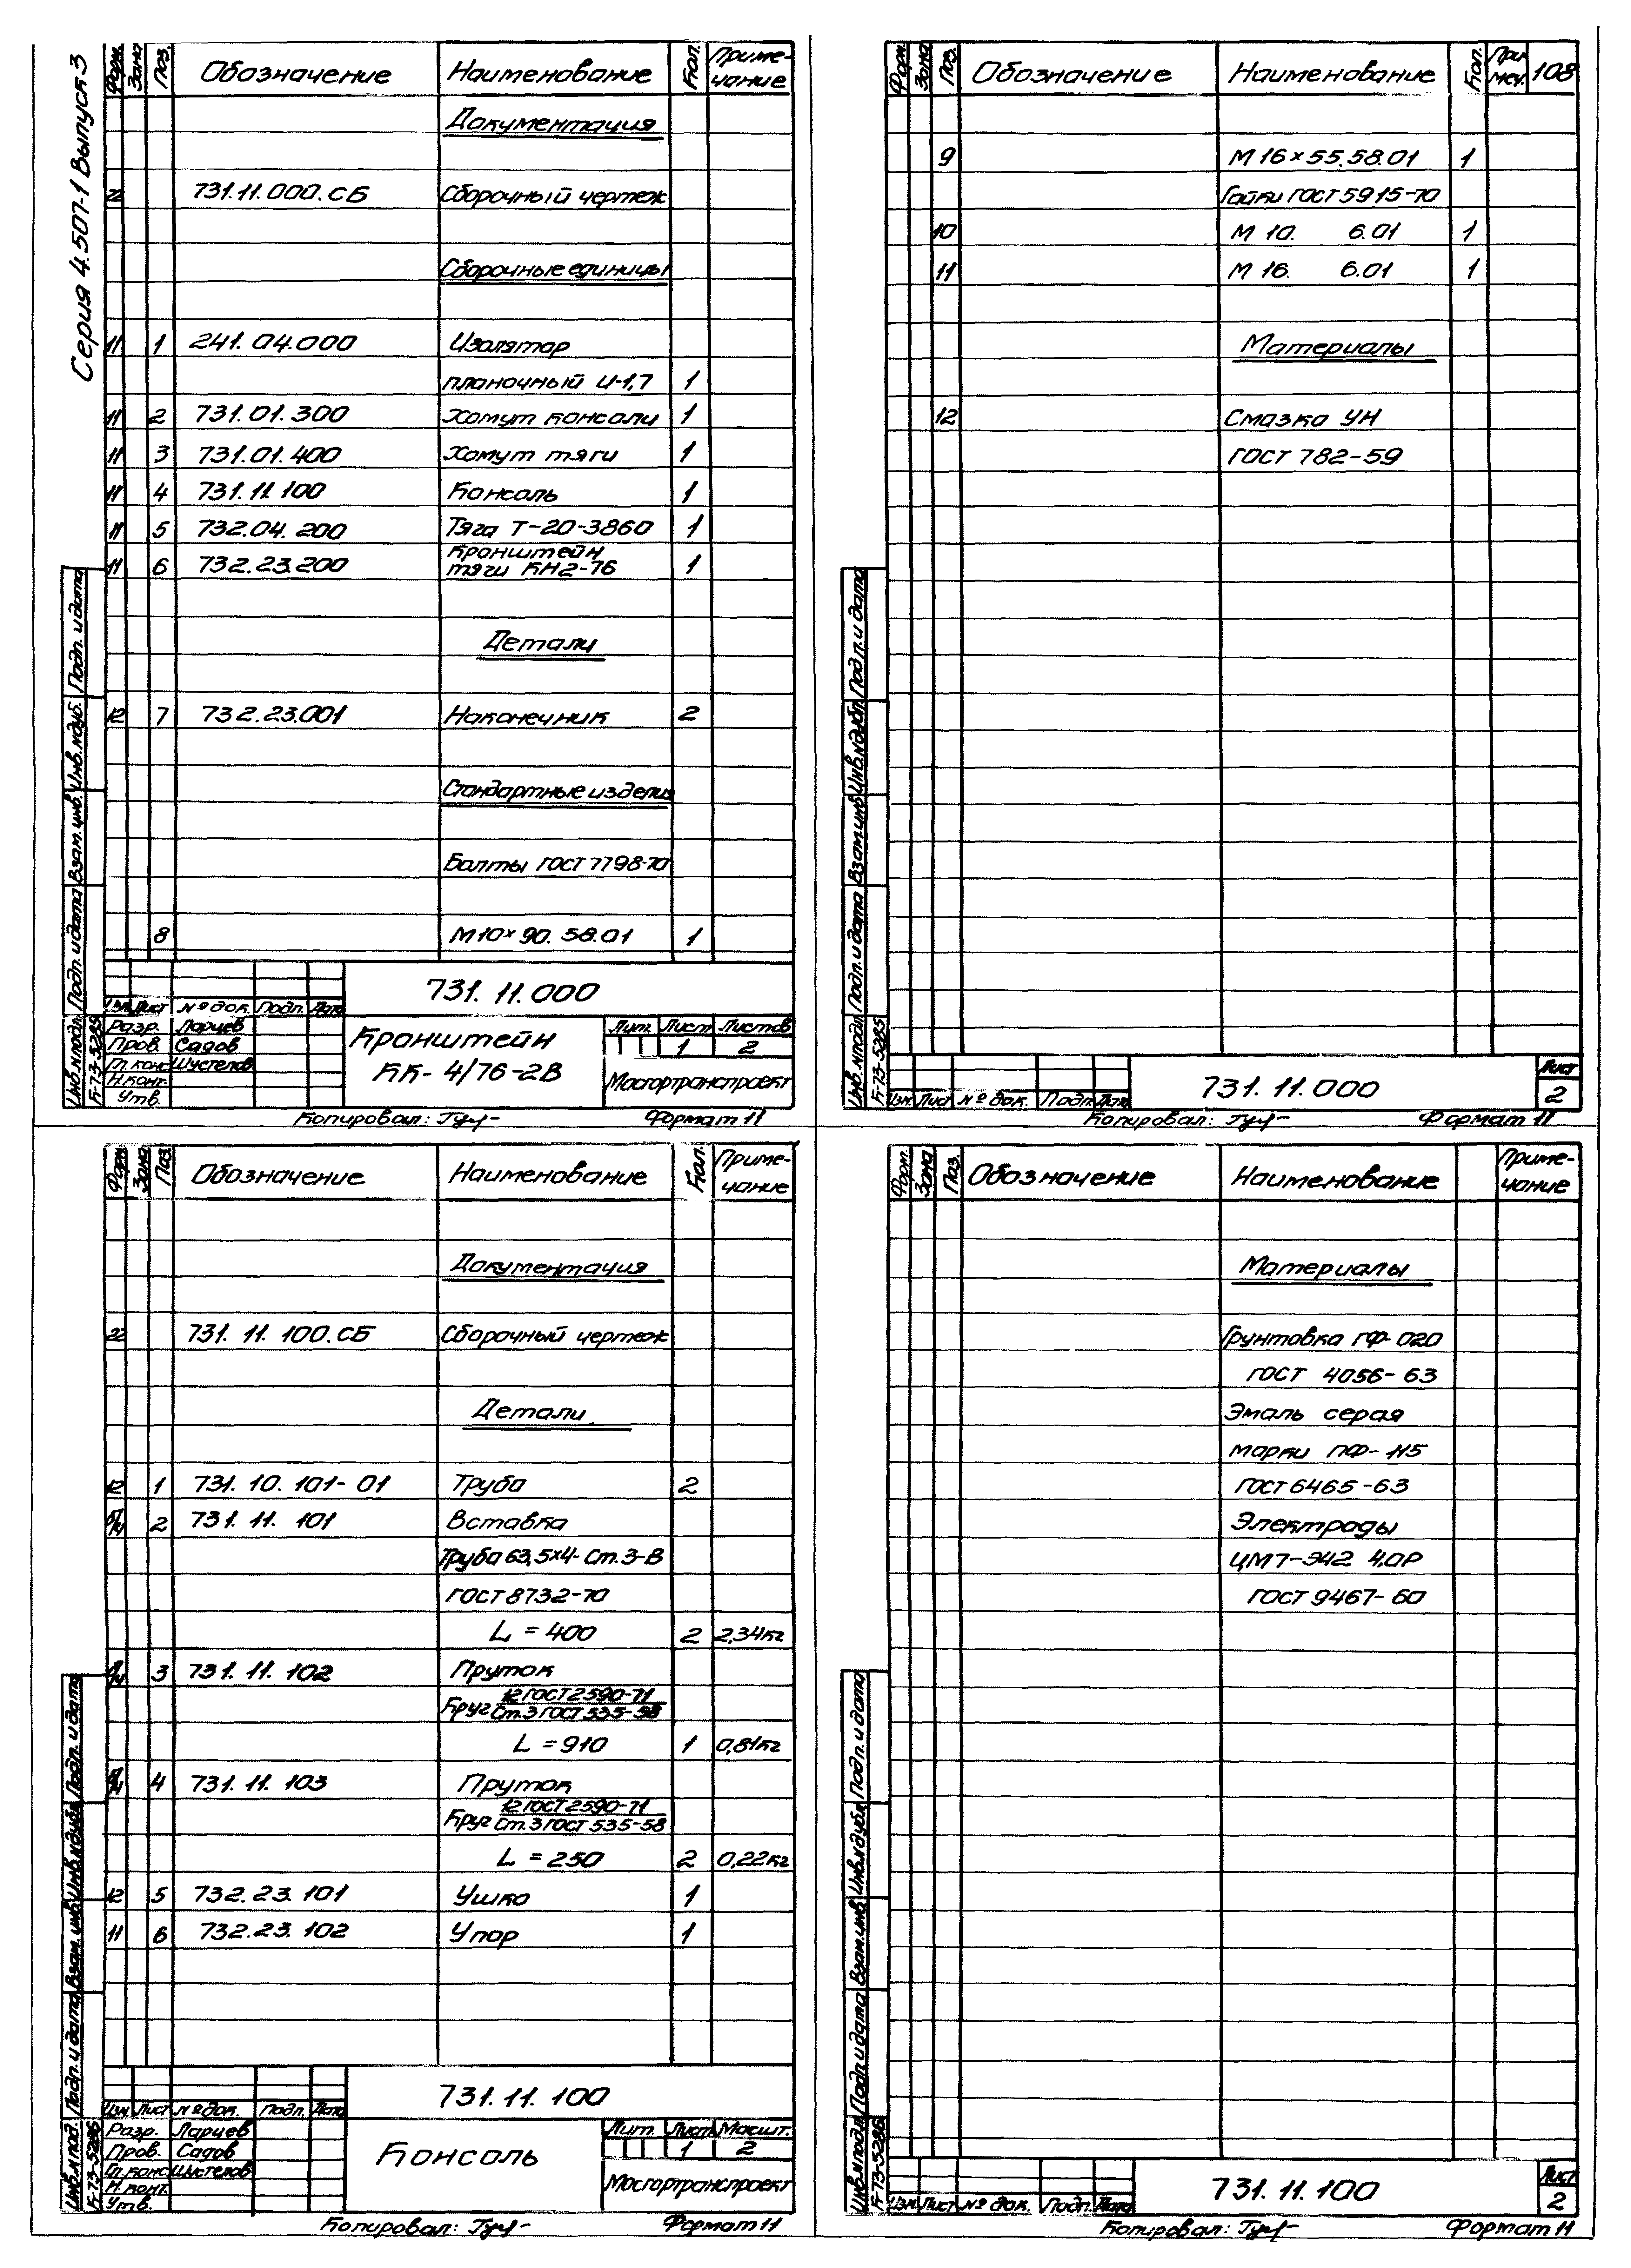 Серия 4.507-1 Выпуск 3
Форм. Зона Поз. Обозначение Наименование Кол. Приме-
чание
Документация
22 731.11.000.СБ Сборочный чертеж
Сборочные единицы
11 1 241.04.000 Изолятор
планочный И-1,7 1
11 2 731.01.300 Хомут консоли 1
11 3 731.01.400 Хомут тяги 1
11 4 731.11.100 Консоль 1
11 5 732.04.200 Тяга Т-20-3860 1
11 6 732.23.200 Кронштейн
тяги КН2-76 1
Детали
12 7 732.23.001 Наконечник 2
Стандартные изделия
Болты ГОСТ 7798-70
8 М10×90.58.01 1
Инв.N подл. Подп. и дата Взам. инв. Инв.N дуб. Подп. и дата
К-73-5285
731.11.000
Изм. Лист № док. Подп. Дата
Разр. Ларцев
Пров. Садов
Гл. конс. Шустелов
Н.конт.
Утв.
Кронштейн
КК-4/76-2В
Лит. Лист Листов
1 2
Мосгортранспроект
Копировал: Формат 11
Форм. Зона Поз. Обозначение Наименование Кол. При
меч. 108
9 М16×55.58.01 1
Гайки ГОСТ 5915-70
10 М 10. 6.01 1
11 М 16. 6.01 1
Материалы
12 Смазка УН
ГОСТ 782-59
Инв.N подл. Подп. и дата Взам. инв. Инв.N дубл. Подп. и дата
К-73-5285
Изм. Лист № док. Подп. Дата
731.11.000
Лист
2
Копировал: Формат 11
Форм. Зона Поз. Обозначение Наименование Кол. Приме-
чание
Документация
22 731.11.100.СБ Сборочный чертеж
Детали
12 1 731.10.101-01 Труба 2
БЧ 2 731.11.101 Вставка
Труба 63,5×4-Ст.3-В
ГОСТ 8732-70
L = 400 2 2,34кг
БЧ 3 731.11.102 Пруток
Круг 12 ГОСТ 2590-71
Ст.3 ГОСТ 535-58
L = 910 1 0,81кг
БЧ 4 731.11.103 Пруток
Круг 12 ГОСТ 2590-71
Ст.3 ГОСТ 535-58
L = 250 2 0,22кг
12 5 732.23.101 Ушко 1
11 6 732.23.102 Упор 1
Инв.N подл. Подп. и дата Взам. инв. Инв.N дубл. Подп. и дата
К-73-5286
731.11.100
Изм. Лист № док. Подп. Дата
Разр. Ларцев
Пров. Садов
Гл. конс. Шустелов
Н.конт.
Утв.
Консоль
Лит. Лист Масшт.
1 2
Мосгортранспроект
Копировал: Формат 11
Форм. Зона Поз. Обозначение Наименование Приме-
чание
Материалы
Грунтовка ГФ-020
ГОСТ 4056-63
Эмаль серая
марки ПФ-115
ГОСТ 6465-63
Электроды
ЦМ7-Э42 4,0Р
ГОСТ 9467-60
Инв.N подл. Подп. и дата Взам. инв. Инв.N дубл. Подп. и дата
К-73-5286
Изм. Лист № док. Подп. Дата
731.11.100
Лист
2
Копировал: Формат 11